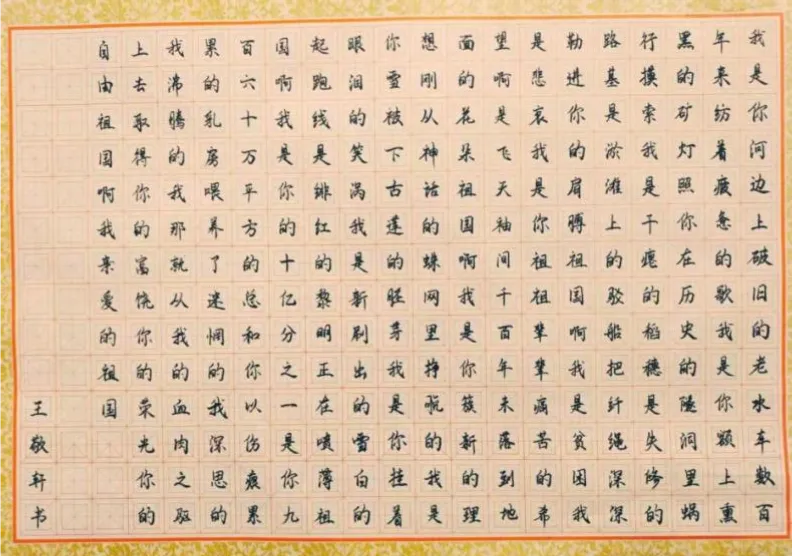 我是你河边上破旧的老水车数百
年来纺着疲惫的歌我是你额上熏
黑的矿灯照你在历史的隧洞里蜗
行摸索我是干瘪的稻穗是失修的
路基是淤滩上的驳船把纤绳深深
勒进你的肩膊祖国啊我是贫困我
是悲哀我是你祖祖辈辈痛苦的希
望啊是飞天袖间千百年未落到地
面的花朵祖国啊我是你簇新的理
想刚从神话的蛛网里挣脱的我是
你雪被下古莲的胚芽我是你挂着
眼泪的笑涡我是新刷出的雪白的
起跑线是绯红的黎明正在喷薄祖
国啊我是你的十亿分之一是你九
百六十万平方的总和你以伤痕累
累的乳房喂养了迷惘的我深思的
我沸腾的我那就从我的血肉之躯
上去取得你的富饶你的荣光你的
自由祖国啊我亲爱的祖国
王敬轩书